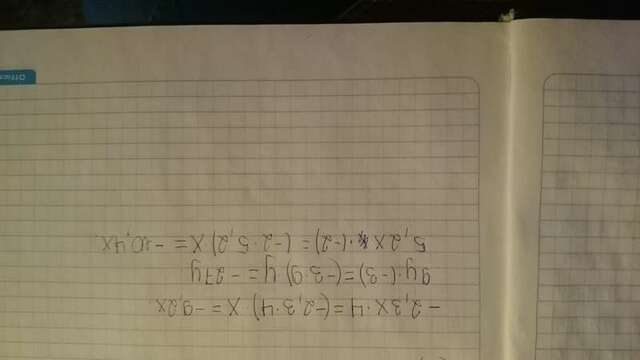 -2,3x·4=(-2,3·4) x=-9,2x
9y·(-3)=(-3·9) y=-27y
5,2x·(-2)=(-2·5,2) x=-10,4x
Office